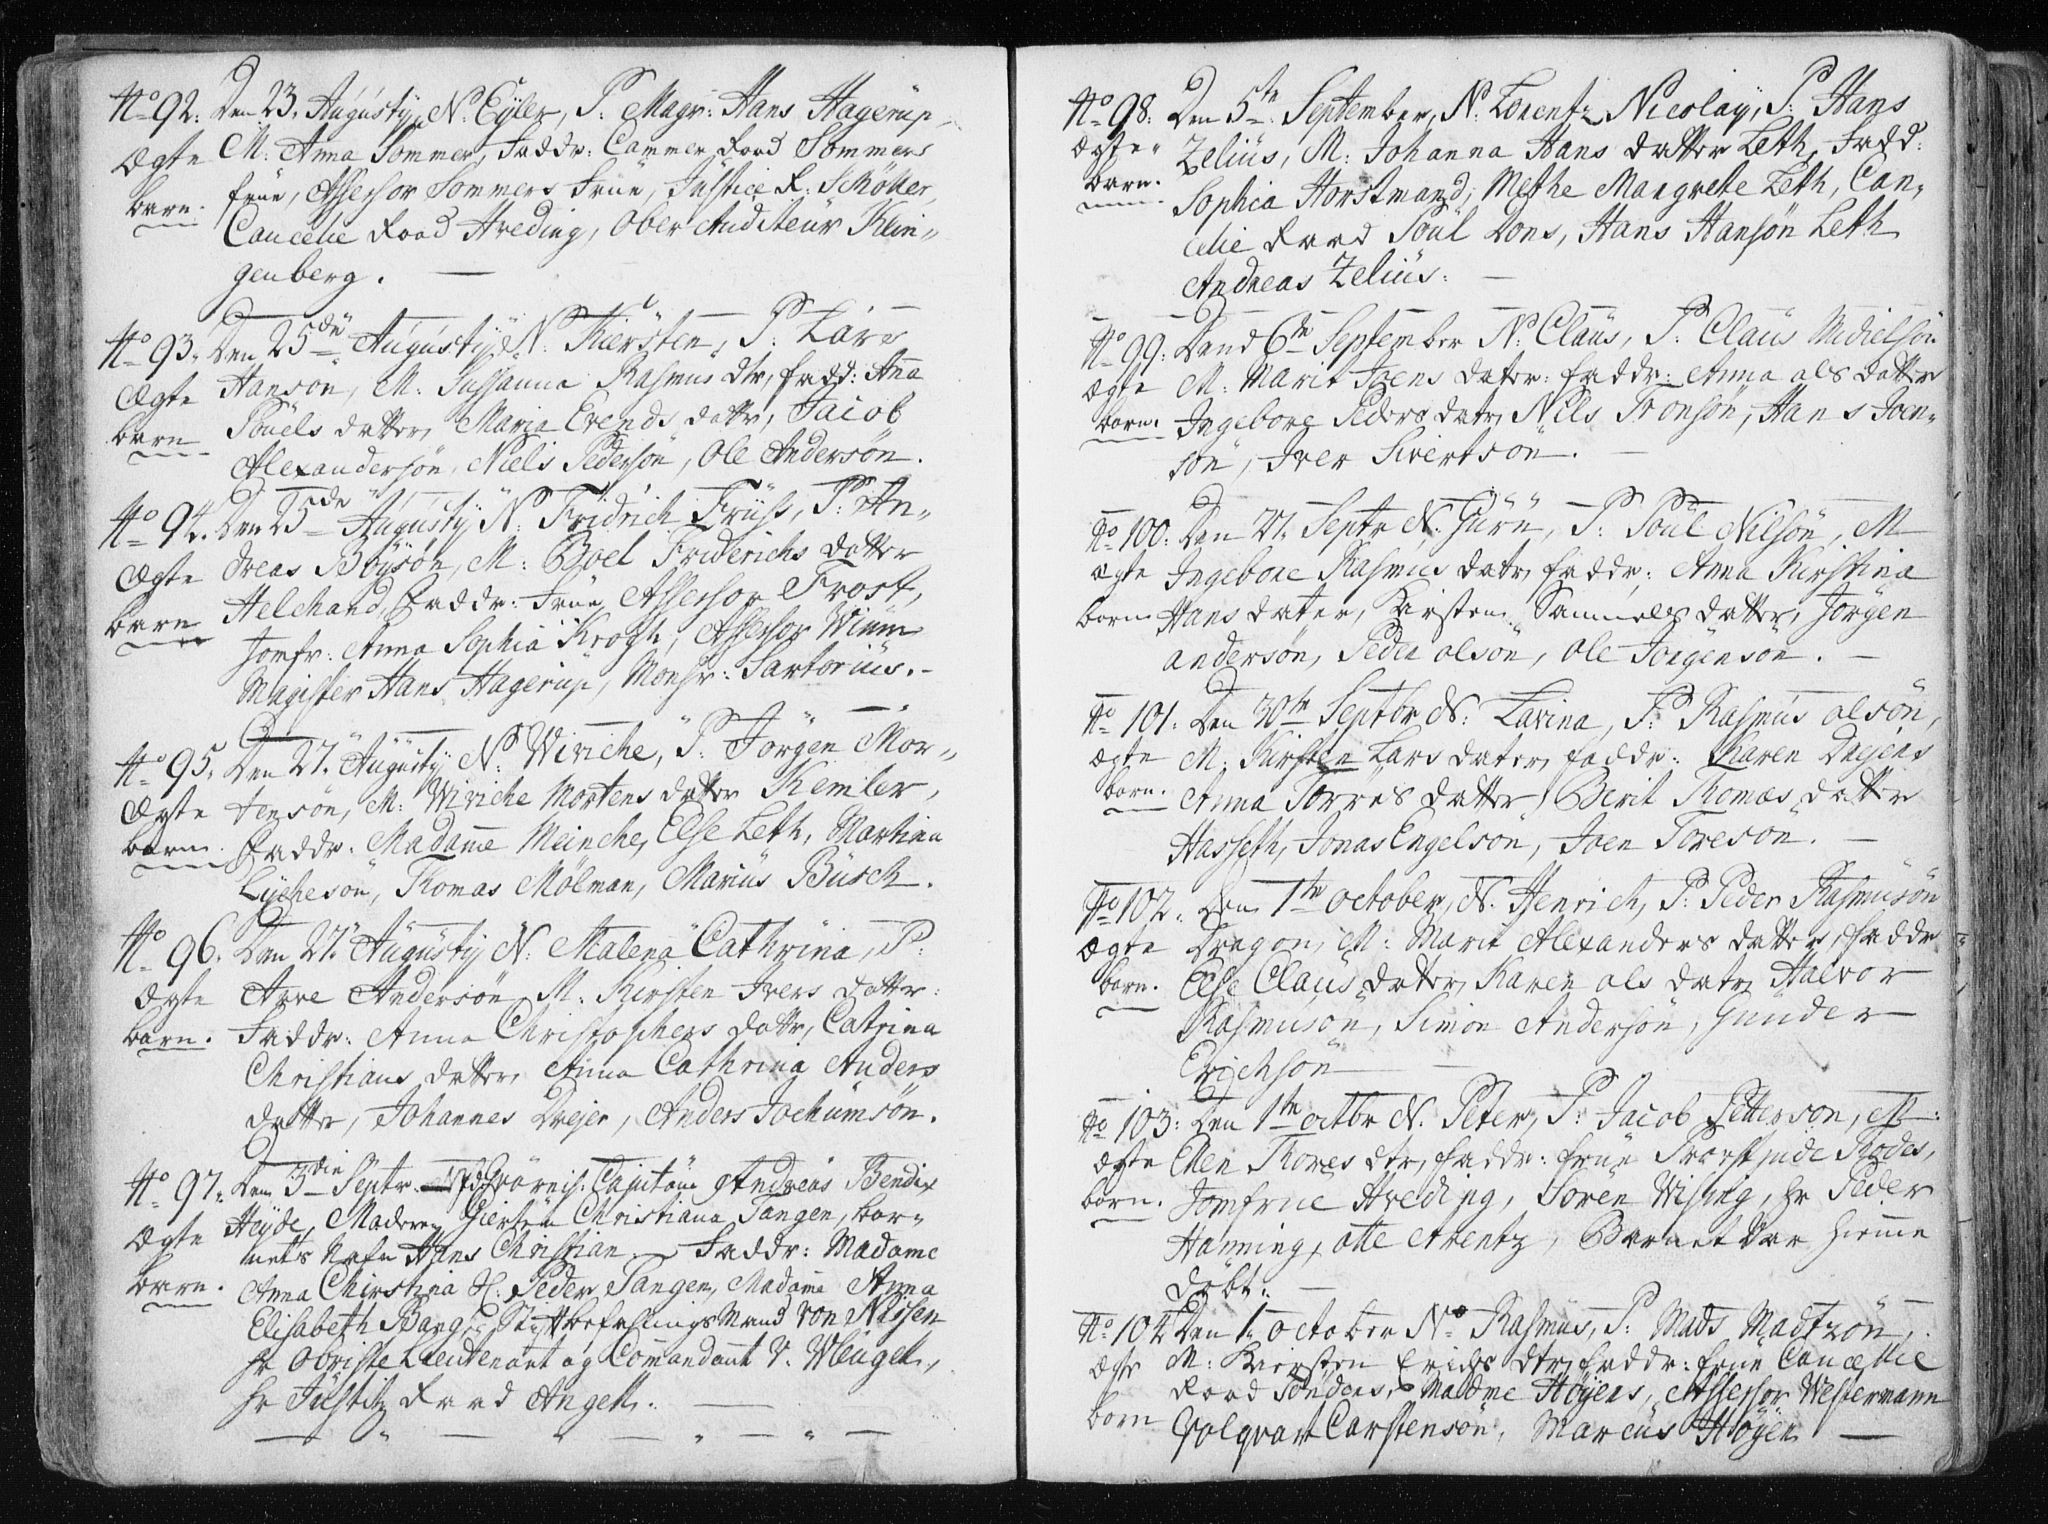 No 92. Den 23. Augusty, N. Eyler, P. Magr: Hans Hagerup,
Ægte M. Anna Sommer, Faddr: Cammer Raad Sommers
barn. frue, Assessor Sommers Frue, Justice R: Schöller,
Cancelie Raad Hveding, Ober Auditeur Klin-
genberg.
No 93. Den 25de Augusty, N. Kiersten, P. Lars
Ægte Hansön, M. Sussanna Rasmus dtr, fadd: Anna
barn Pouels datter, Maria Evends dattr, Jacob
Alexandersön, Niels Pedersön, Ole Andersön.
No 94. Den 25de Augusty N. Fridrich Früss, P. An-
Ægte dreas Boysön, M: Boel Friderichs datter
barn Helchand, Faddr: Frue Assessor Frost,
Jomfr: Anna Sophia Krogh, Assessor Wium
Magister Hans Hagerup, Monsr: Sartorius.
No 95. Den 27. Augusty N. Wiviche, P. Jörgen Mor-
Ægte tensön, M: Wiviche Mortens datter Kemler,
barn. Faddr: Madame Meinche, Else Leth, Martinu
Lychesön, Thomas Mölman, Marius Busch.
No 96. Den 27. Augusty N. Malena Cathrina, P:
Ægte Arve Andersön M. Kirsten Ivers dattr:
barn. Faddr: Anna Christophers dattr, Catrina
Christians datter, Anna Cathrina Anders
datter, Johannes Drejer, Anders Jochumsön.
No 97. Den 3die Septr. Capitain Andreas Bendix
Ægte Heyde, Moderen Giertru Christiana Tangen, bar-
barn. nets Nafn Hans Christian. Faddr: Madame
Anna Chirstina H: Peder Tangen, Madame Anna
Elisabeth Bang, Stiftbefahlings Mand von Nissen
hr Obriste Lieutenant og Comandant V. Wleugel,
hr Justitz Raad Angell.
No 98. Den 5te September, N. Lorentz Nicolay, P: Hans
Ægte Zelius, M: Johanna Hans datter Leth, Fadd:
barn. Sophia Horstmand, Methe Margrete Leth, Can-
celie Raad Poul Dons, Hans Hansön Leth
Andreas Zelius.
No 99: Dend 6te September N. Claus, P. Claus Michelsön
Ægte M. Marit Joens dater: faddr: Anna als datter
barn. Ingebore Peders datr, Nils Tronsön, Hans Joen-
sön, Iver Sivertsön.
No 100: Den 27. Septr N. Guru, P: Poul Nilsön, M
Ægte Ingebore Rasmus datr, faddr: Anna Kirstina
barn Hans dater, Kirsten Samuels datter, Jörgen
andersön, Peder olsön, Ole Jörgensön.
No 101. Den 30te Septbr N: Lavina, P: Rasmus olsön,
ægte M: Kirsten Lars dater, faddr: Karen Drejers
barn. Anna Torres datter, Berit Thomas datter
Hasseth, Jonas Engelsön, Joen Toresön.
No 102. Den 1te october, N. Henrich, P: Peder Rasmusön
Ægte Dragon, M: Marit Alexanders datter, Faddr
barn. Else Claus datter, Karen als datr, Halvor
Rasmusön, Simon Andersön, Gunder
Erichsön
No 103: Den 1te octbr N. Peter, P: Jacob Petterson, M:
ægte Ellen Thores dtr, Faddr: frue Provstinde Rodes,
barn. Jomfrue Hveding, Sören Wisvig, hr Peder
Hanning, otte Arentz, Barnet Var hiemme
döbt.
No 104 Den 1. october N. Rasmus, P: Mads Madtzön,
ægte M: Kiersten Erichs dtr, faddr: frue Cancellie
barn Raad Pouders, Madme Höyers, Assessor Westermann
Volqvart Carstensön, Marcus Höyer